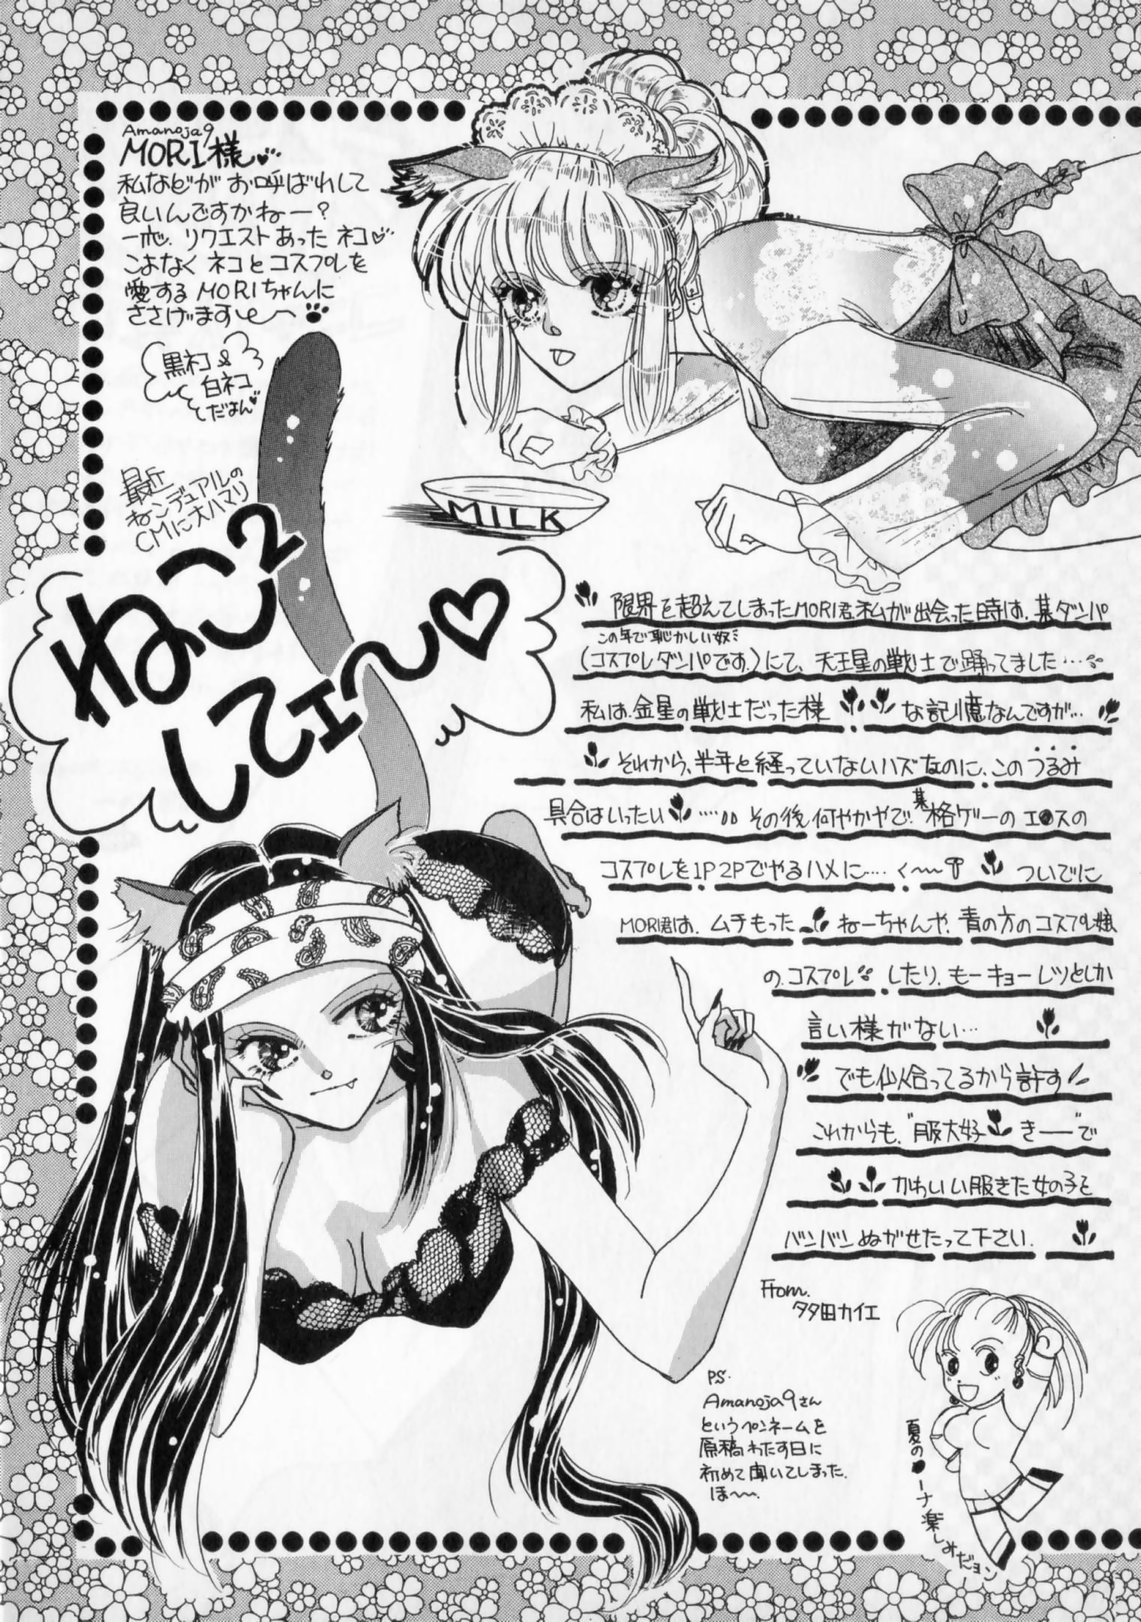 Amanoja9
MORI様
私などが お呼ばれして
良いんですかねー?
一応、リクエストあった ネコ♡
こよなく ネコとコスプレを
愛する MORIちゃんに
ささげます
黒ネコ &
白ネコ
だよん♡
最近
ねこデュアルの
CMに大ハマリ
ねこ2
してェ〜♡
MILK
限界を超えてしまったMORI君、私が出会った時は、某ダンパ
この年で恥かしい奴…
(コスプレダンパです。)にて、天王星の戦士で踊ってました…
私は、金星の戦士だった様 な記憶なんですが…
それから、半年と経っていないハズなのに、このうるみ
具合はいったい …… その後、何やかやで、某格ゲーの エ●スの
コスプレを1P 2Pでやるハメに…. く〜 ついでに
MORI君は、ムチもった ねーちゃんや、青の方のコスプレ娘
の、コスプレ したり、もーキョーレツとしか
言い様がない…
でも似合ってるから許す
これからも、"服大好 きーで
かわいい服きた女の子を
バンバンぬがせたって下さい.
From.
タタ田カイエ
PS.
Amanoja9さん
というペンネームを
原稿わたす日に
初めて聞いてしまった.
ほ〜.
夏の●ーナ楽しみだョン